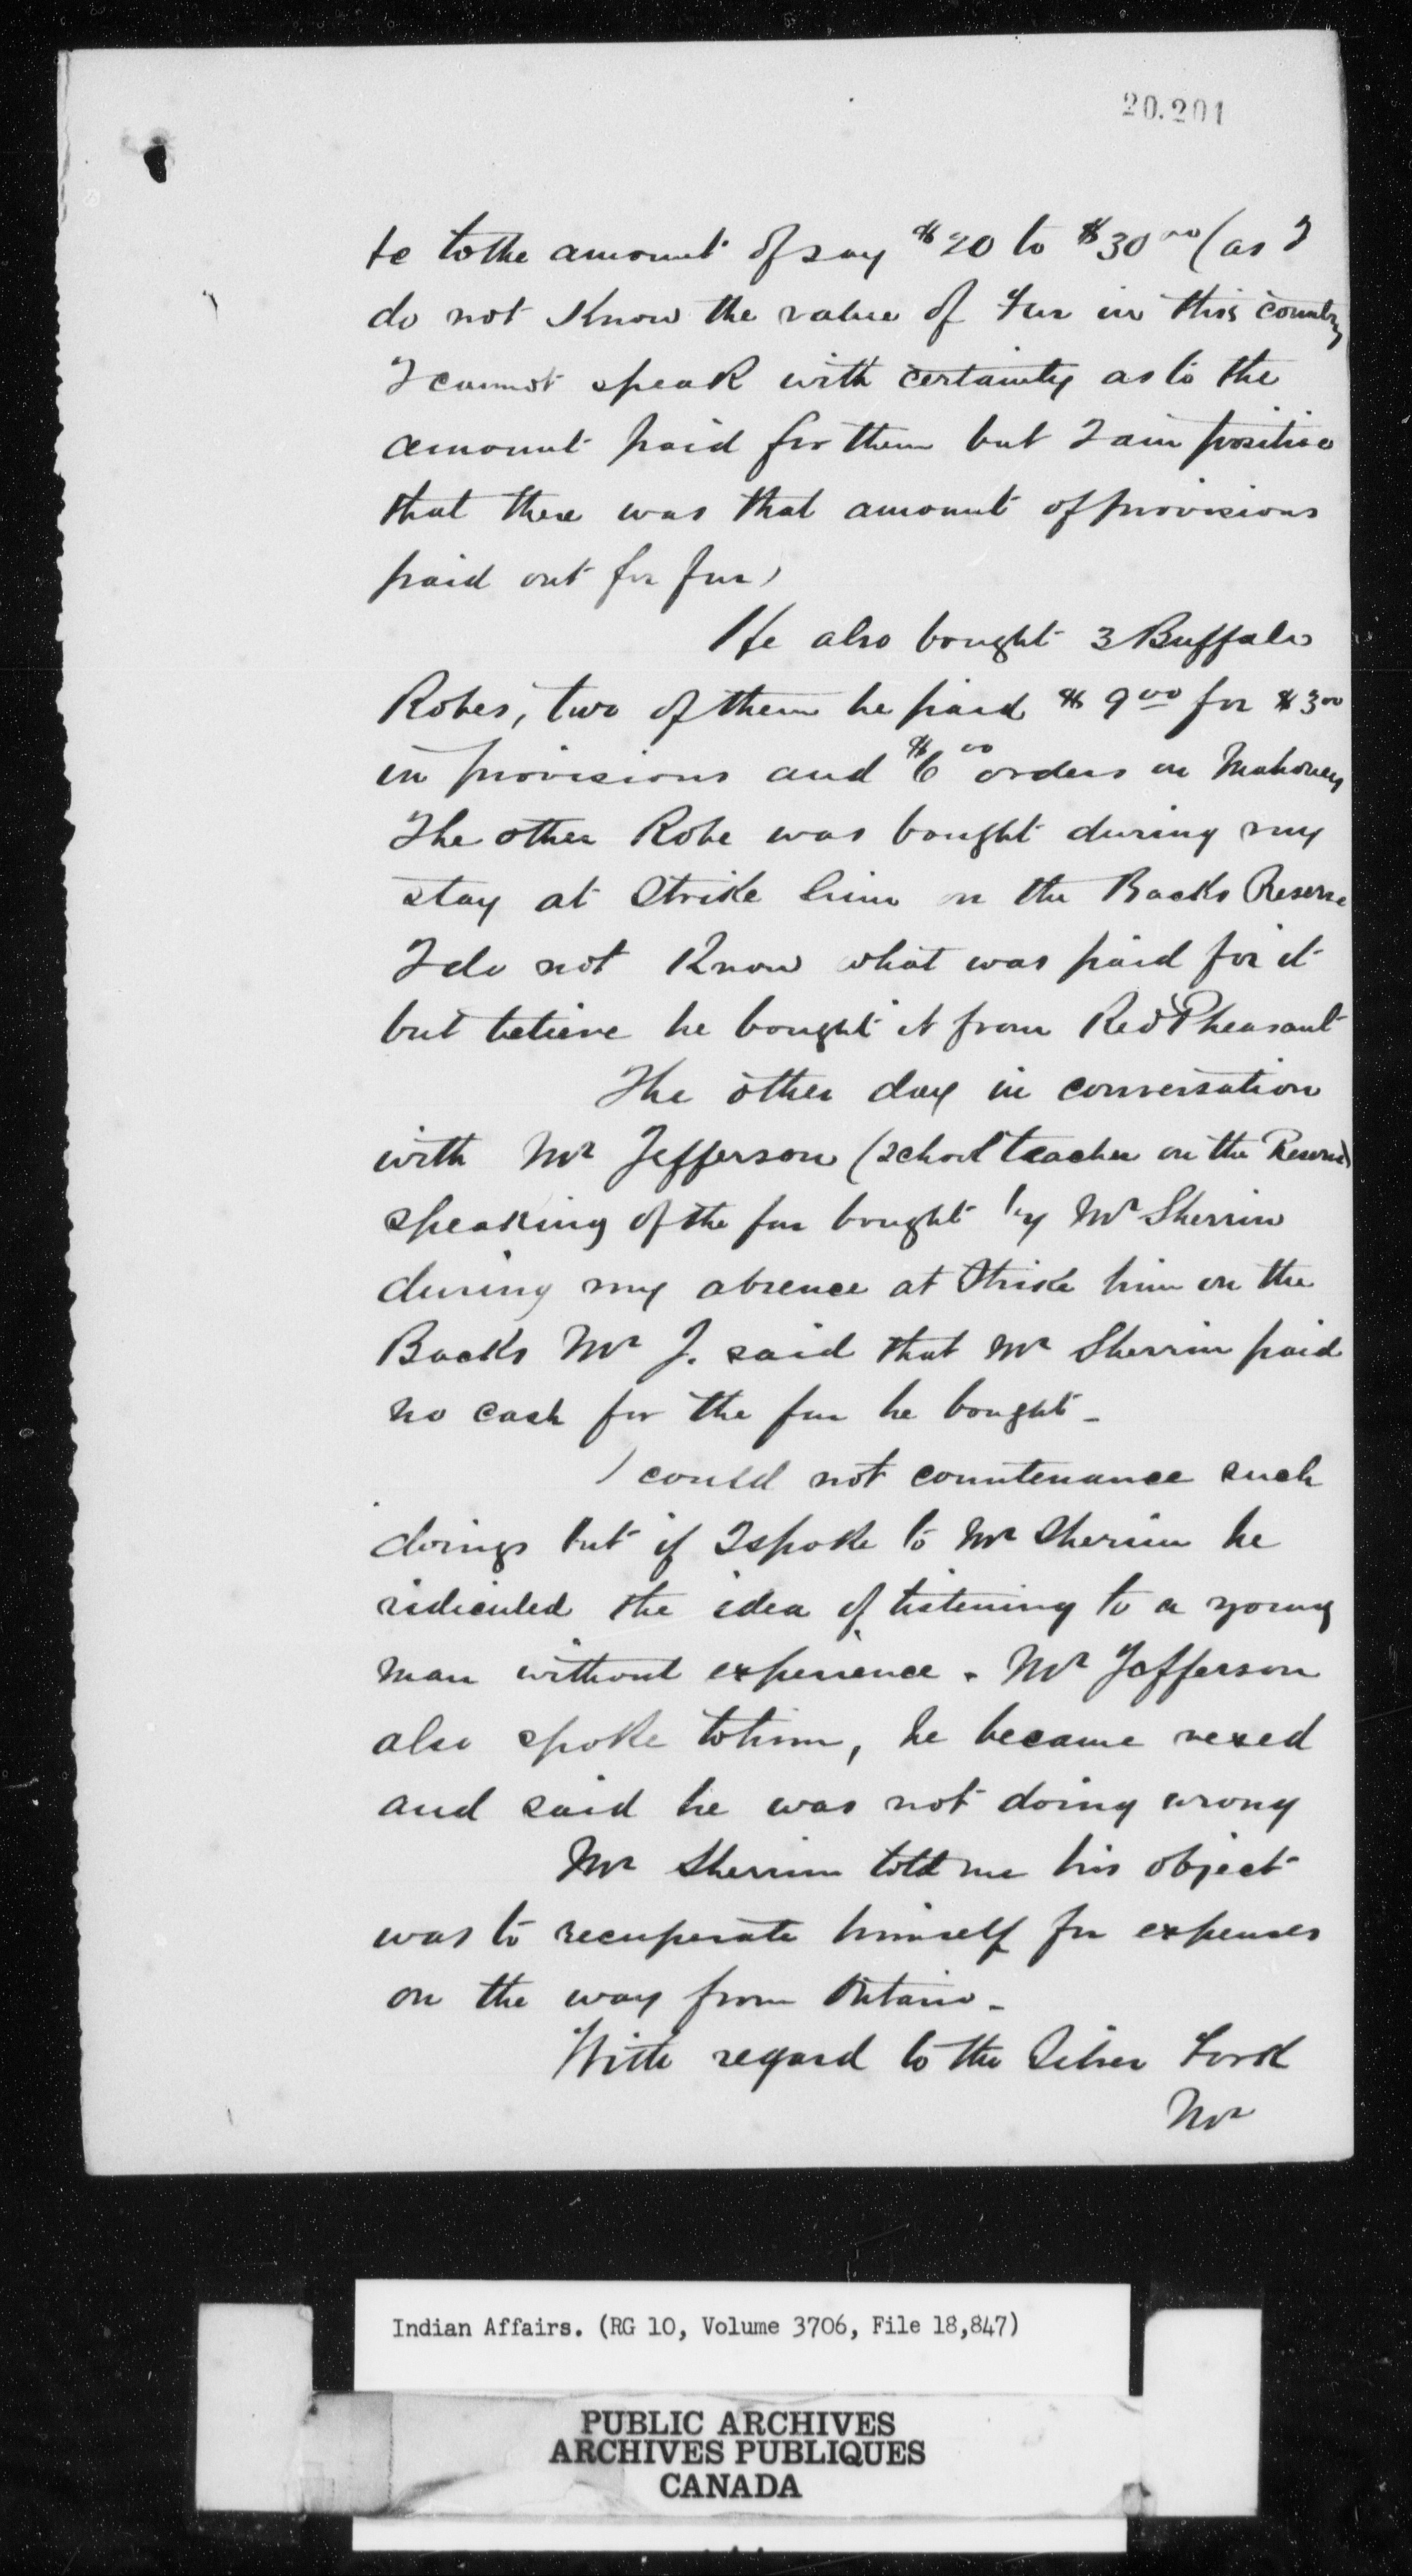 20.201
te to the amount of say $20 to $30 00 (as I
do not Know the value of Fur in this country
I cannot speak with certainty as to the
amount paid for them but I am positive
that there was that amount of provisions
paid out for fur)
He also bought 3 Buffalo
Robes, two of them he paid $9 00 for $3 00
in provisions and $6 00 orders on Mahoney
The other Robe was bought during my
stay at Strike him on the Backs Reserve
I do not Know what was paid for it
but believe he bought it from Red Pheasant
The other day in conversation
with Mr Jefferson (School teacher on the Reserve)
speaking of the fur bought by Mr Sherrin
during my absence at Strike him on the
Backs Mr J. said that Mr Sherrin paid
no cash for the fur he bought -
I could not countenance such
doings but if I spoke to Mr Sherrin he
ridiculed the idea of listening to a young
man without experience. Mr Jefferson
also spoke to him, he became vexed
and said he was not doing wrong
Mr Sherrin told me his object
was to recuperate himself for expenses
on the way from Ontario -
With regard to the Silver Fork
Mr
Indian Affairs. (RG 10, Volume 3706, File 18,847)
PUBLIC ARCHIVES
ARCHIVES PUBLIQUES
CANADA